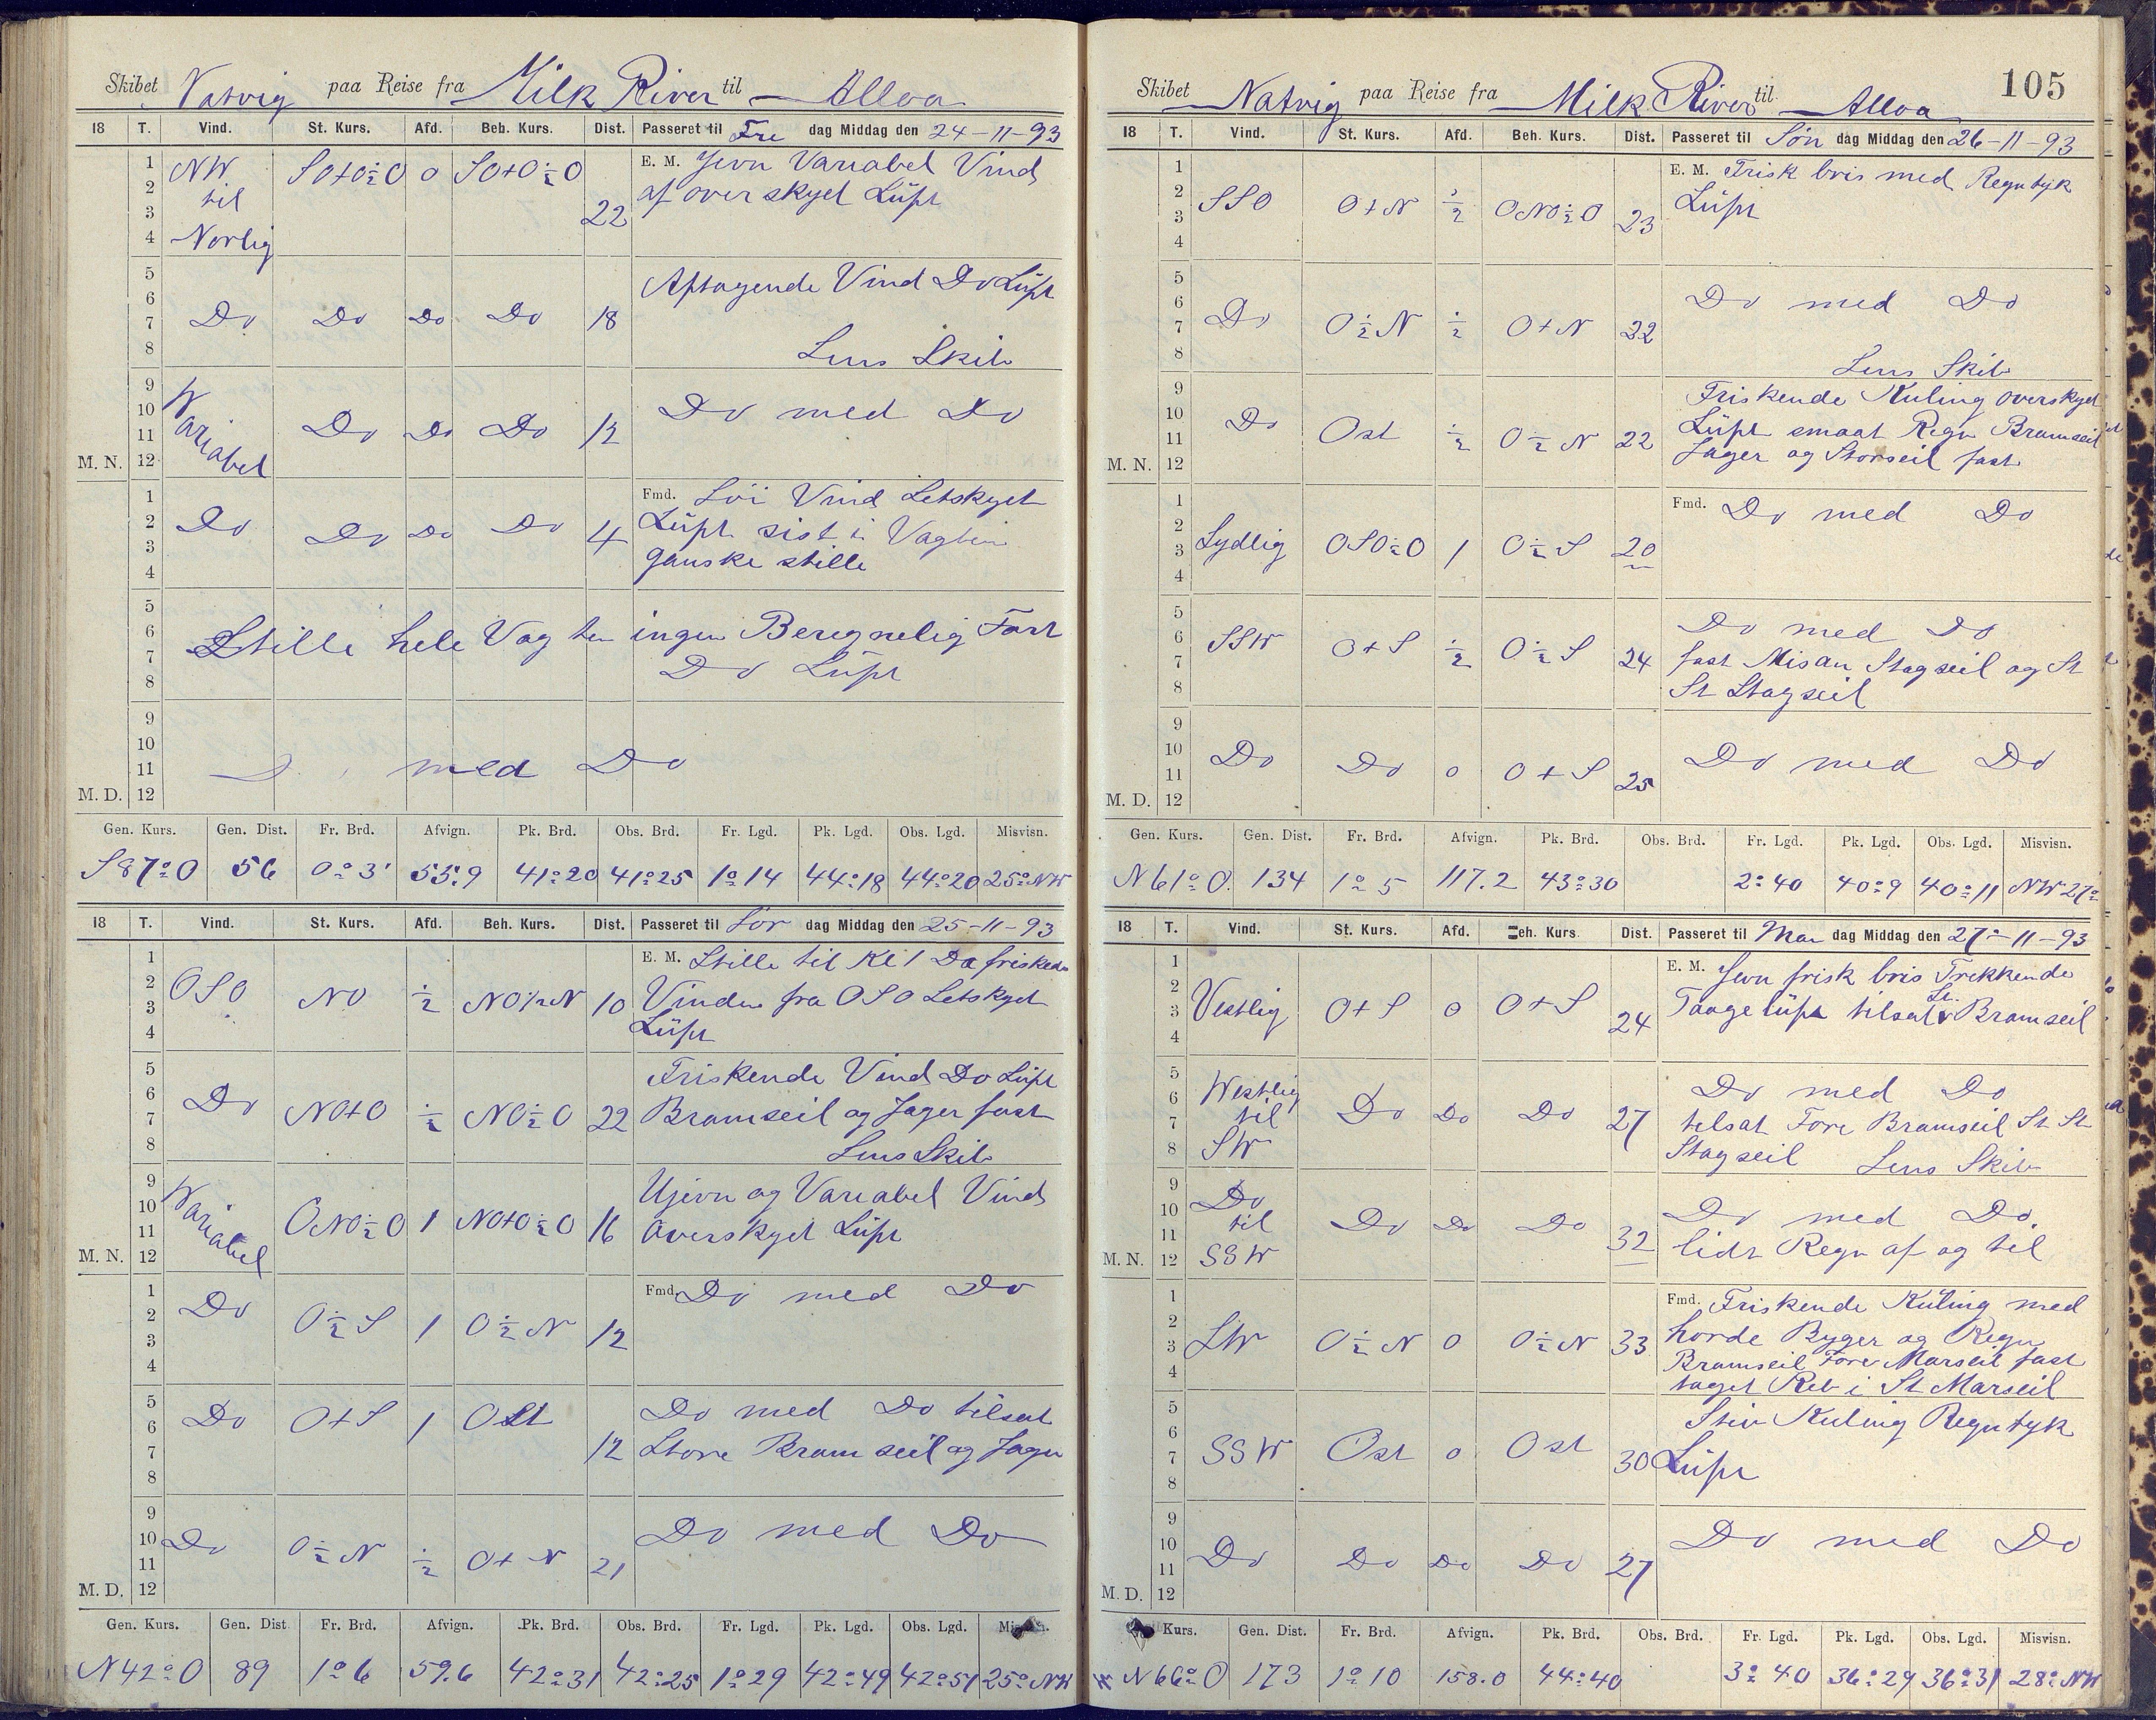 Skibet Natvig paa Reise fra Milk River til Alloa
18 T. Vind. St. Kurs. Afd. Beh. Kurs. Dist. Passeret til Fre dag Middag den 24-11-93
1 2 3 4 NW til Norlig SO+O½O 0 SO+O½O 22 E. M. Jevn Variabel Vind
af over skyet Lüft
5 6 7 8 Do Do Do Do 18 Aftagende Vind Do Lüft
Lens Skib
9 10 11 M. N. 12 Variabel Do Do Do 12 Do med Do
1 2 3 4 Do Do Do Do 4 Fmd. Löi Vind Letskyet
Lüft sist i Vagten
ganske stille
5 6 7 8 Stille hele Vagten ingen Beregnelig Fart
Do Lüft
9 10 11 M. D. 12 med Do
Gen. Kurs. Gen. Dist. Fr. Brd. Afvign. Pk. Brd. Obs. Brd. Fr. Lgd. Pk. Lgd. Obs. Lgd. Misvisn.
S87°O 56 0°3' 55.9 41°20 41°25 1°14 44°18 44°20 25°NW
18 T. Vind. St. Kurs. Afd. Beh. Kurs. Dist. Passeret til Lör dag Middag den 25-11-93
1 2 3 4 OSO NO ½ NO½N 10 E. M. Stille til Kl 1 Da friskede
Vinden fra OSO Letskyet
Lüft
5 6 7 8 Do NO+O ½ NO½O 22 Friskende Vind Do Lüft
Bramseil og Jager fast
Lens Skib
9 10 11 M. N. 12 Variabel ONO½O 1 NO+O½O 16 Ujevn og Variabel Vind
overskyet Lüft
1 2 3 4 Do O½S 1 O½N 12 Fmd. Do med Do
5 6 7 8 Do O+S 1 Ost 12 Do med Do tilsat
Store Bramseil og Jager
9 10 11 M. D. 12 Do O½N ½ O+N 21 Do med Do
Gen. Kurs. Gen. Dist Fr. Brd. Afvign. Pk. Brd. Obs. Brd. Fr. Lgd. Pk. Lgd. Obs. Lgd. Misvisn.
N42°O 89 1°6 59.6 42°31 42°25 1°29 42°49 42°51 25°NW
Skibet Natvig paa Reise fra Milk River til Alloa 105
18 T. Vind. St. Kurs. Afd. Beh. Kurs. Dist. Passeret til Søn dag Middag den 26-11-93
1 2 3 4 SSO O+N ½ ONO½O 23 E. M. Frisk bris med Regntyk
Lüft
5 6 7 8 Do O½N ½ O+N 22 Do med Do
Lens Skib
9 10 11 M. N. 12 Do Ost ½ O½N 22 Friskende Kuling overskyet
Lüft smaat Regn Bramseil
Jager og Storseil fast
1 2 3 4 Sydlig OSO½O 1 O½S 20 Fmd. Do med Do
5 6 7 8 SSW O+S ½ O½S 24 Do med Do
fast Misan Stagseil og St
St Stagseil
9 10 11 M. D. 12 Do Do 0 O+S 25 Do med Do
Gen. Kurs. Gen. Dist. Fr. Brd. Afvign. Pk. Brd. Obs. Brd. Fr. Lgd. Pk. Lgd. Obs. Lgd. Misvisn.
N61°O. 134 1°5 117.2 43°30 2°40 40°9 40°11 NW 27°
18 T. Vind. St. Kurs. Afd. Beh. Kurs Dist. Passeret til Man dag Middag den 27-11-93
1 2 3 4 Vestlig O+S 0 O+S 24 E. M. Jevn frisk bris Trekkende
Taage lüft tilsat St. Bramseil
5 6 7 8 Westlig til SW Do Do Do 27 Do med Do
tilsat Fore Bramseil St St
Stagseil Lens Skib
9 10 11 M. N. 12 Do til SSW Do Do Do 32 Do med Do
lidt Regn af og til
1 2 3 4 SW O½N 0 O½N 33 Fmd. Friskende Küling med
horde Byger og Regn
Bramseil Fore Marseil fast
taget Reb i St Marseil
5 6 7 8 SSW Ost 0 Ost 30 Stiv Kuling Regntyk
Lüft
9 10 11 M. D. 12 Do Do Do Do 27 Do med Do
Kurs. Gen. Dist. Fr. Brd. Afvign. Pk. Brd. Obs. Brd. Fr. Lgd. Pk. Lgd. Obs. Lgd. Misvisn.
N66°O 173 1°10 158.0 44°40 3°40 36°29 36°31 28°NW